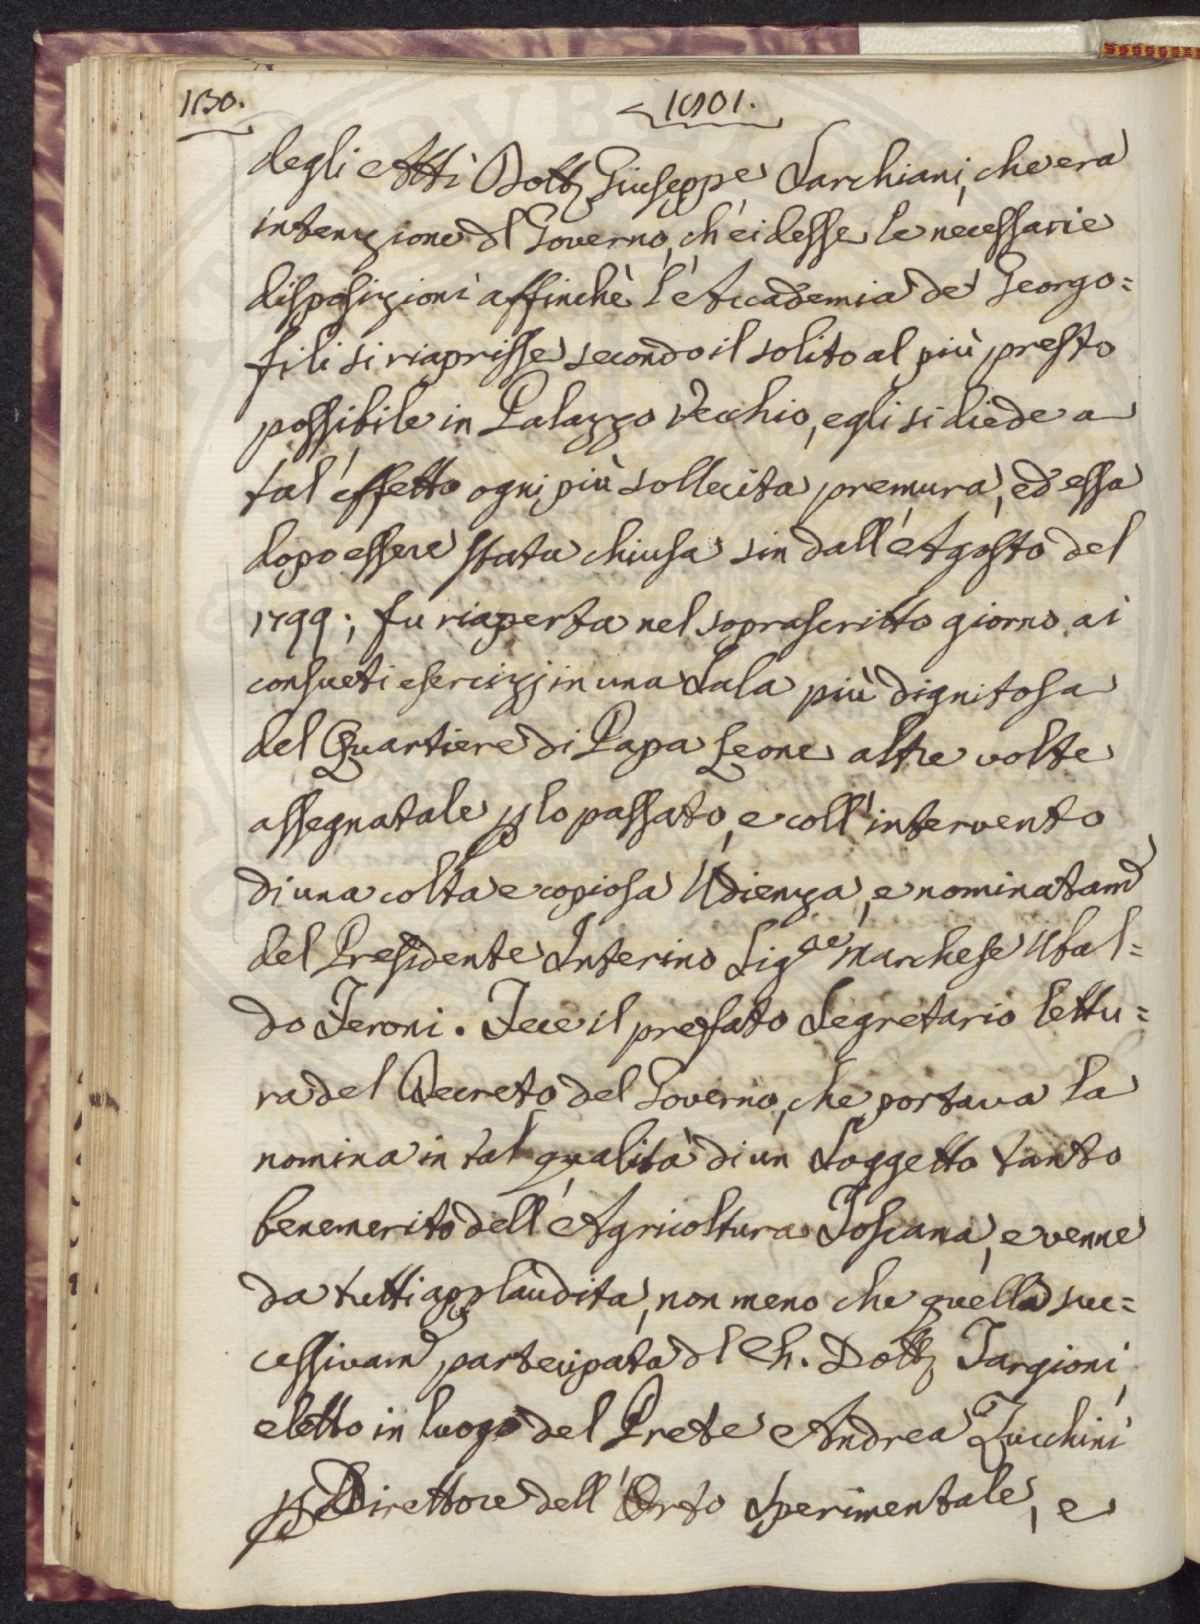 130.
1801.
degli Atti Dott. Giuseppe Sarchiani, che era
intenzione dl Governo, ch'ei desse le necessarie
disposizioni affinchè l'Accademia de' Georgo=
fili si riaprisse secondo il solito al più presto
possibile in Palazzo Vecchio, egli si diede a
tal'effetto ogni più sollecita premura, ed essa
dopo essere stata chiusa sin dall'Agosto del
1799; fu riaperta nel soprascritto giorno ai
consueti esercizj in una Sala più dignitosa
del Quartiere di Papa Leone altre volte
assegnatale p lo passato, e coll'intervento
di una colta e copiosa Udienza, e nominatam
del Presidente Interino Sigre Marchese Ubal=
do Feroni. Fece il prefato Segretario lettu=
ra del Decreto del Governo, che portava la
nomina in tal qualità di un Soggetto tanto
benemerito dell'Agricoltura Toscana, e venne
da tutti applaudita, non meno che quella suc=
cessivam partecipata dl Ch. Dott. Targioni,
eletto in luogo del Prete Andrea Zucchini
p Direttore dell'Orto Sperimentale, e